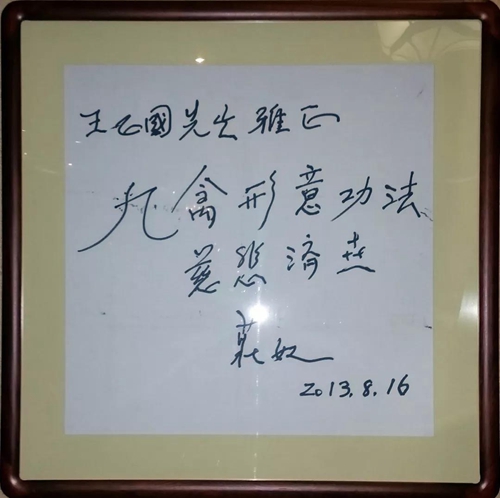 王國先生雅正
九禽形意功法
慈悲濟世
莊奴
2013.8.16